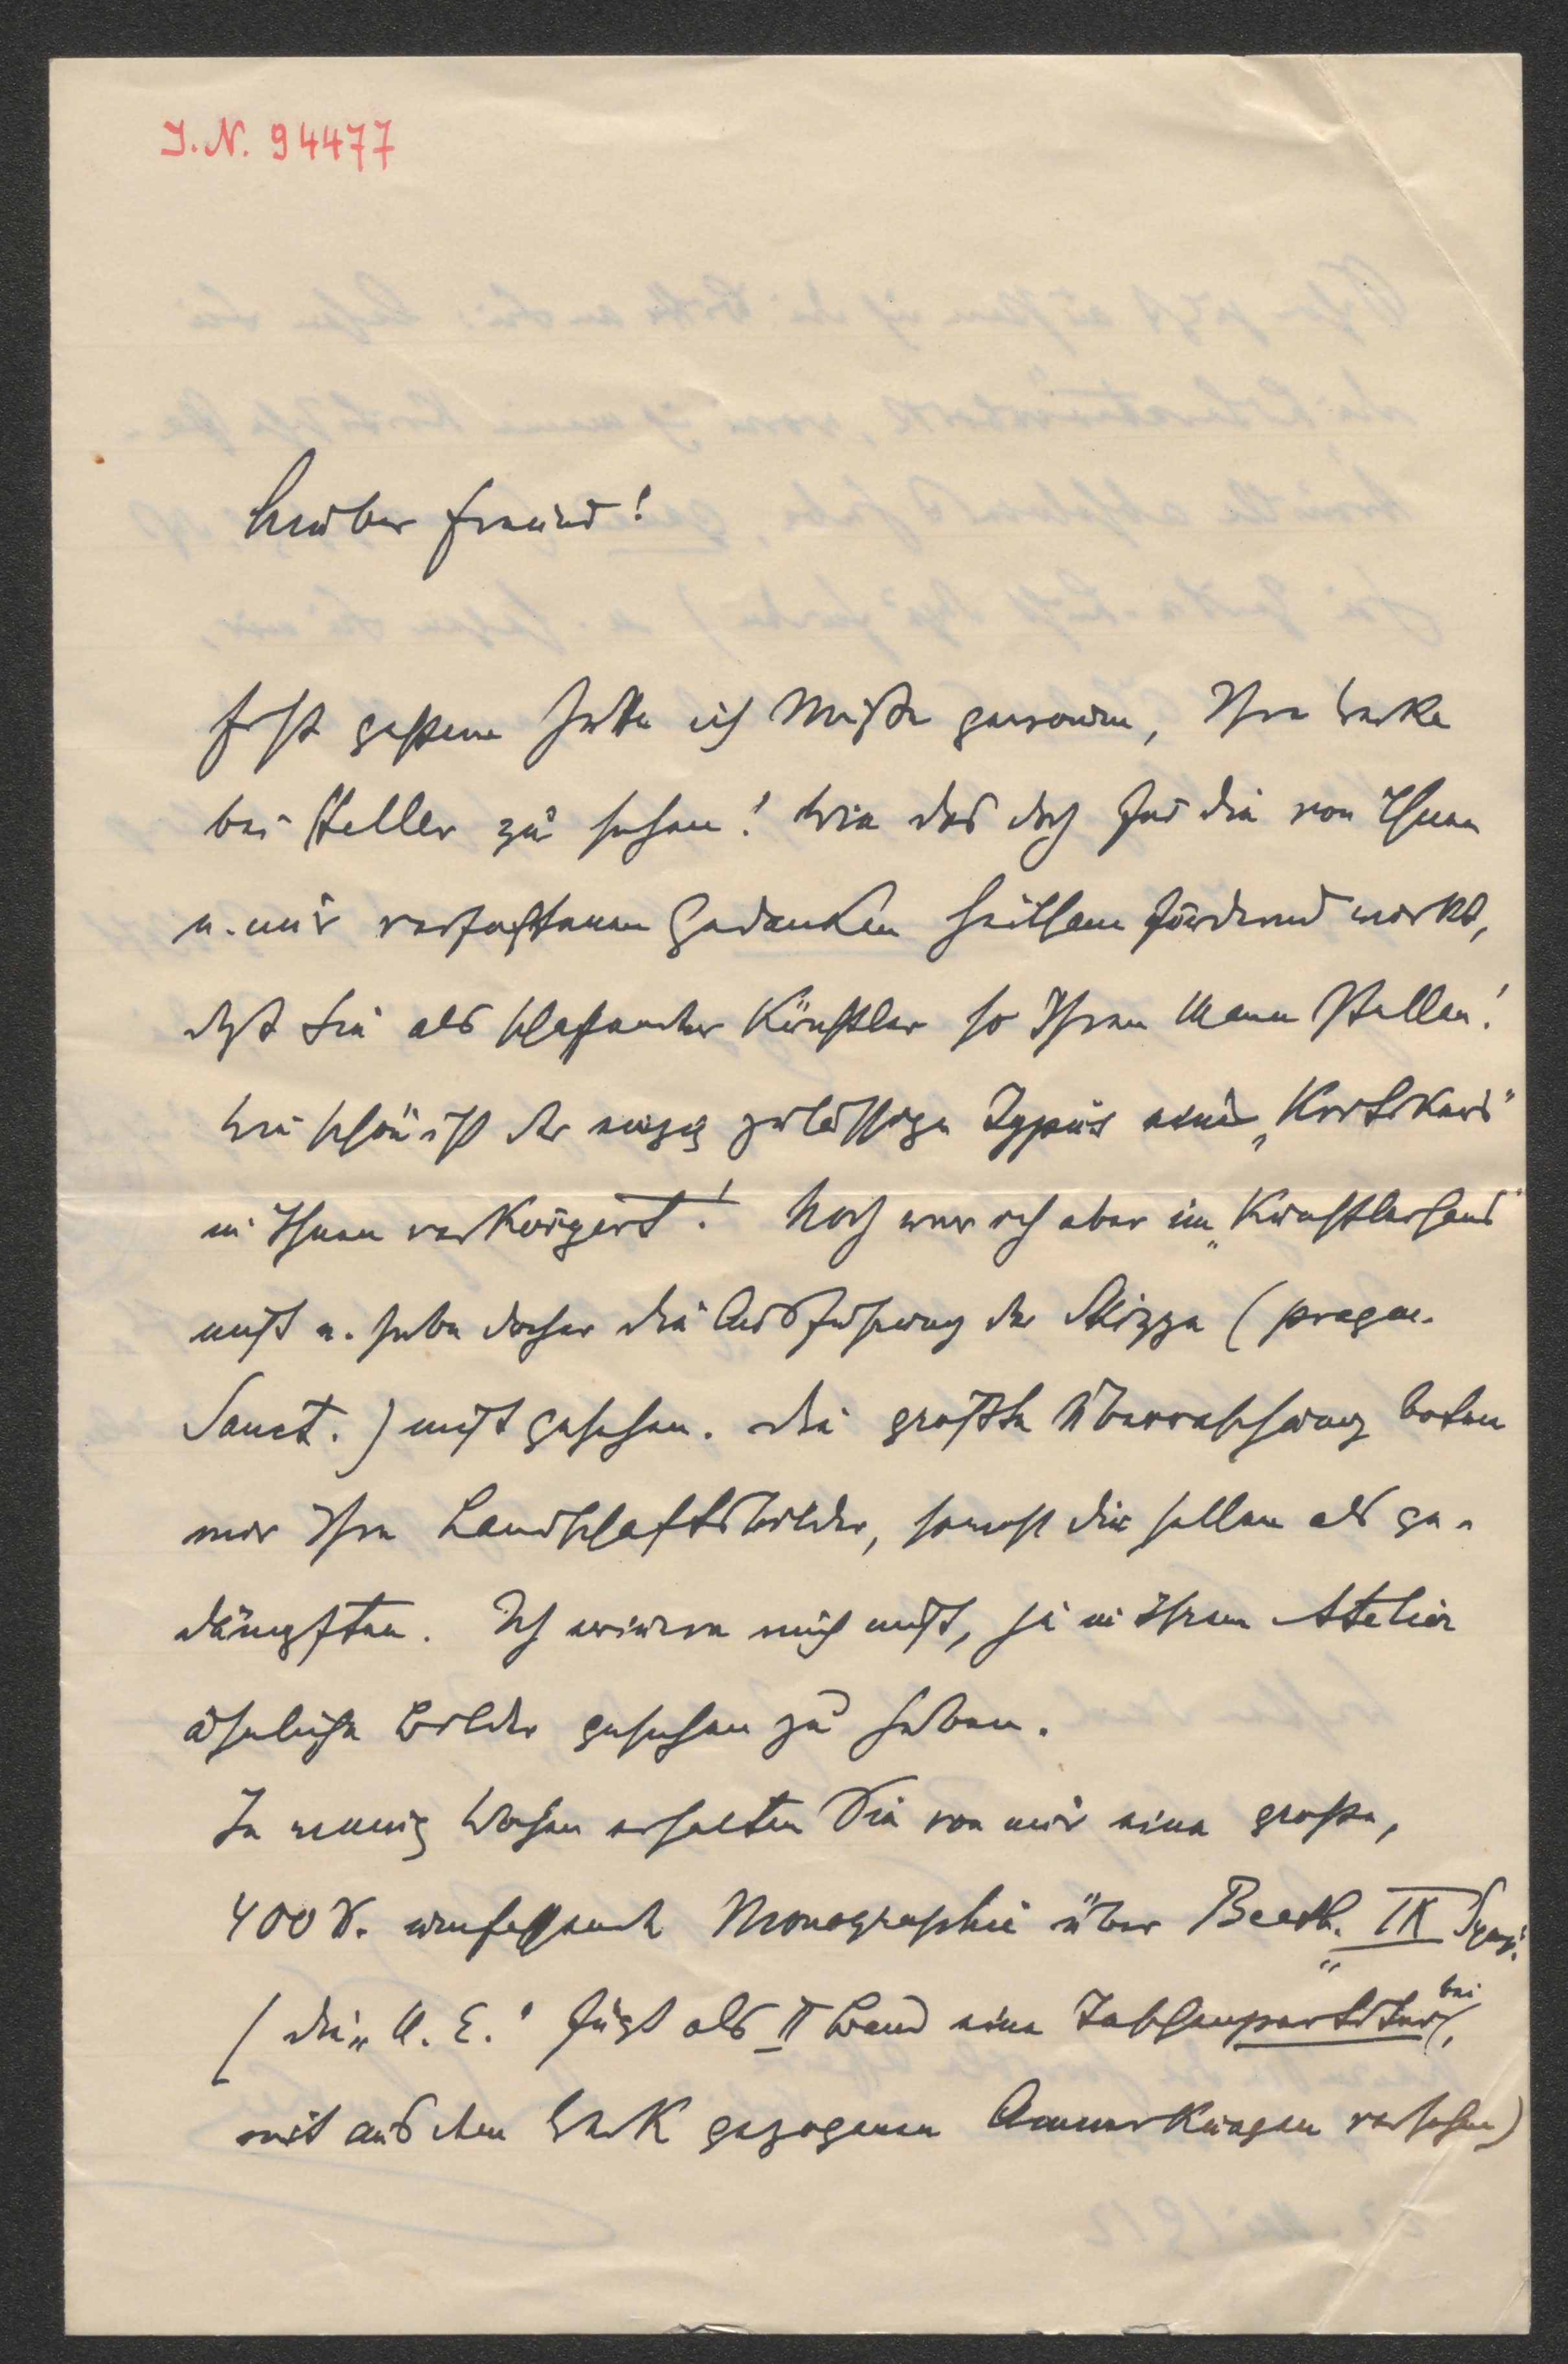 I.N. 94477
Lieber Freund!
Erst gestern hatte ich Muße gewonnen, Ihre Werke
bei Heller zu sehen! Wie das doch für die von Ihnen
u. mir verfochtenen Gedanken heilsam fördernd wirkt,
daß Sie als schaffender Künstler so Ihren Mann stellen!
Wie schön ist der einzig zulässige Typus eines „Kritikers"
in Ihnen verkörpert! Noch war ich aber im „Künstlerhaus"
nicht u. habe daher die Ausführung der Skizze (pragm.
Sanct.) nicht gesehen. Die größte Überraschung boten
mir Ihre Landschaftsbilder, sowohl die hellen als ge-
dämpften. Ich erinnere mich nicht, je in Ihrem Atelier
ähnliche Bilder gesehen zu haben.
In wenig Wochen erhalten Sie von mir eine große,
400 S. umfassende Monographie über Beeth. IX Symph.
(die „U. E." fügt als II Band eine Taschenpartitur bei,
mit aus dem Werk gezogenen Anmerkungen versehen)